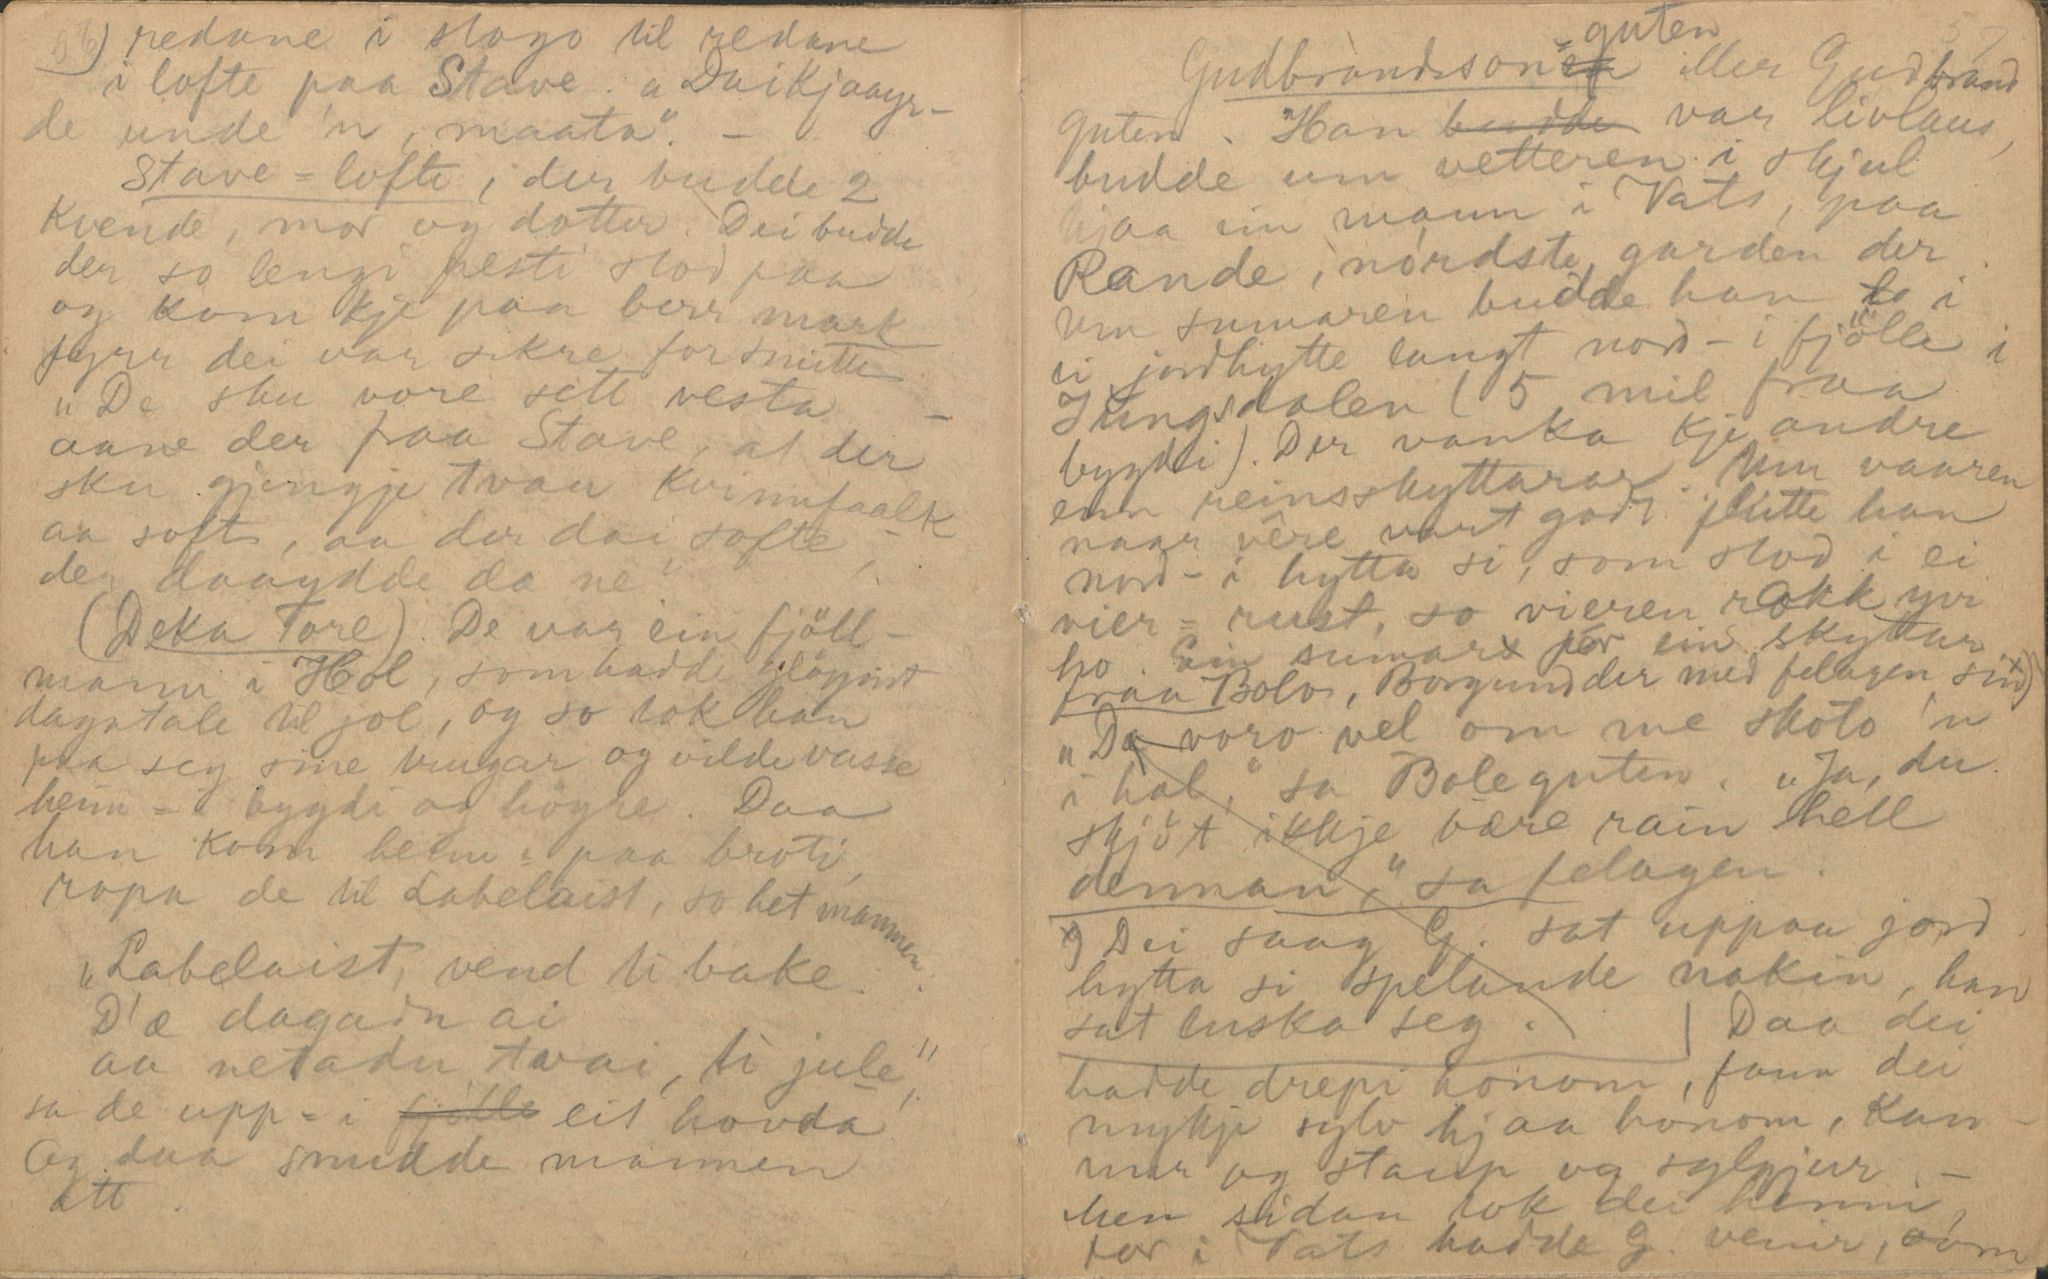 56) redane i slogo til redane
i lofte paa Stave. „Daikjaayr-
de unde 'n, maata“. -
Stave-lofte, der budde 2
kvende, mor og dotter. Dei budde
der so lengi pesti stod paa
og kom kje paa berr mark
fyrr dei var sikre for smitte
„De sku vore sett vesta -
aane der fraa Stave, at der
sku gjengje tvau kvinnfaalk
aa softe, aa der dai softe,
der daaydde dæ ne“
(Deka Tore). De var ein fjöll-
mann i Hol, som hadde glöymt
dagatale til jol, og so tok han
paa seg sine vengar og vilde vasse
heim - i bygdi og högre. Daa
han kom heim - paa broti,
ropa de til Labelaist, so het mannen.
„Labelaist, vend ti bake.
D'æ dagadn ai
aa netadn tvai, ti jule,“
sa de upp-i fjölle eit hovda
Og daa snudde mannen
att.
57
guten
Gudbrandsson=en eller Gudbrand
guten. Han budde var livlaus,
budde um vetteren i skjul
hjaa ein mann i Vats, paa
Rande, nordste garden der.
Um sumaren budde han to i
ei jordhytte langt nord-i fjölle i
Jungsdalen (5 mil fraa
bygdi). Der vanka kje andre
enn reinsskyttarar. Um vaaren
naar vêre vart godt flutte han
nord-i hytta si, som stod i ei
vier-rust, so vieren rakk yver
ho. Ein sumar x for ein skyttar
fraa Bolo, Borgund der med felagen sin x)
„Da voro vel om me skoto 'n
i hæl,“ sa Boleguten. „Ja, du
skjöt ikkje være rain hell
denman,“ sa felagen.
x) Dei saag G. sat uppaa jord
hytta si spelande nakin, han
sat luska seg. | Daa dei
hadde drepi honom, fann dei
mykje sylv hjaa honom, kan-
nur og staup og sylgjur -
men sidan tok dei henni,
for i Vats hadde G. venir, som